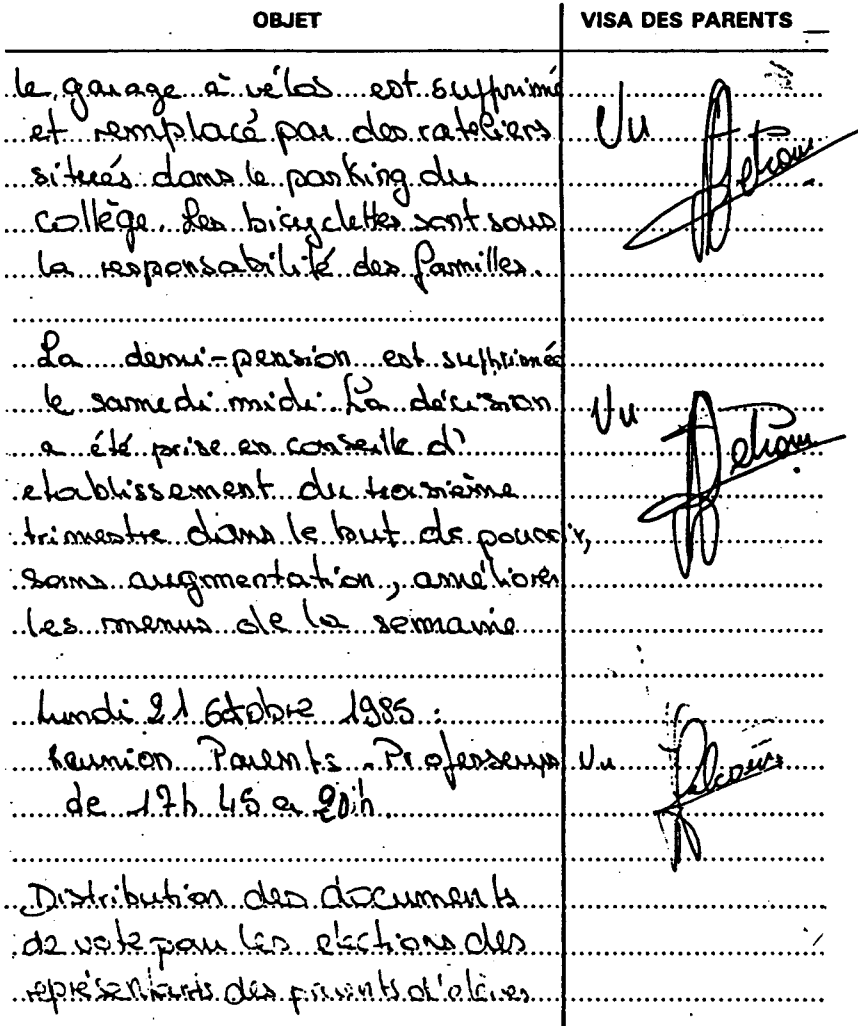 OBJET
VISA DES PARENTS
le garage à vélos est supprimé
et remplacé par des rateliers
situés dans le parking du
collège. Les bicyclettes sont sous
la responsabilité des familles.
Vu
La demi-pension est supprimée
le samedi midi. La décision
a été prise en conseille d'
etablissement du troisième
trimestre dans le but de pouvoir,
sans augmentation, améliorer
les menus de la semaine
Vu
Lundi 21 Octobre 1985 :
Reunion Parents - Professeurs
de 17h 45 a 20h
Vu
Distribution des documents
de vote pour les élections des
représentants des parents d'élèves